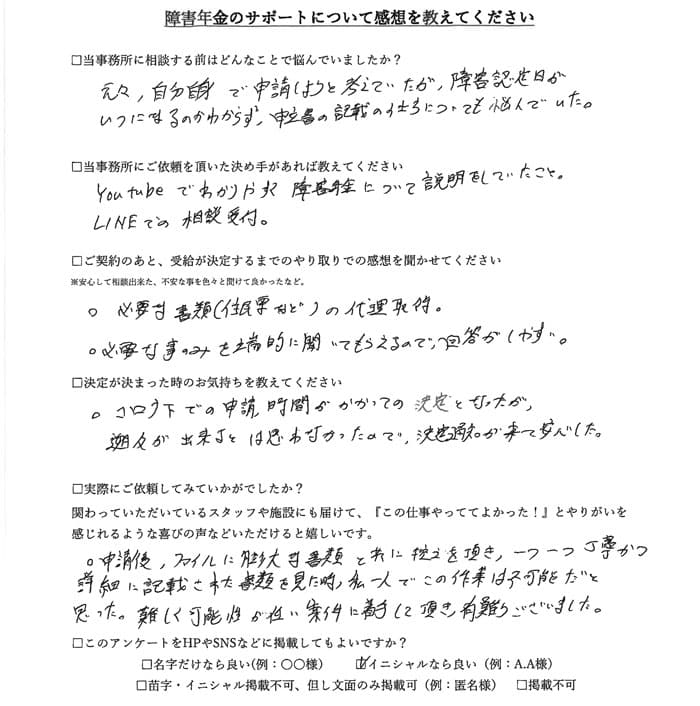 障害年金のサポートについて感想を教えてください
□当事務所に相談する前はどんなことで悩んでいましたか?
元々,自分自身で申請しようと考えていたが,障害認定日が
いつになるのかわからず、申立書の記載の仕方についても悩んでいた。
□当事務所にご依頼を頂いた決め手があれば教えてください
Youtubeでわかりやすく障害年金について説明をしていたこと。
LINEでの相談受付。
□ご契約のあと、受給が決定するまでのやり取りでの感想を聞かせてください
※安心して相談出来た、不安な事を色々と聞けて良かったなど。
○ 必要な書類(住民票など)の代理取得。
○必要な事のみを端的に聞いてもらえるので、回答がしやすい。
□決定が決まった時のお気持ちを教えてください
○ コロナ下での申請,時間がかかっての決定となったが,
遡及が出来るとは思わなかったので,決定通知が来て安心した。
□実際にご依頼してみていかがでしたか?
関わっていただいているスタッフや施設にも届けて、『この仕事やっててよかった!』とやりがいを
感じれるような喜びの声などいただけると嬉しいです。
○申請後,ファイルに膨大な書類と共に控えを頂き,一つ一つ丁寧かつ
詳細に記載された書類を見た時,私一人でこの作業は不可能だと
思った。難しく可能性が低い案件に着手して頂き,有難うございました。
□このアンケートをHPやSNSなどに掲載してもよいですか?
□名字だけなら良い(例:〇〇様) ☑イニシャルなら良い(例:A.A様)
□苗字・イニシャル掲載不可、但し文面のみ掲載可(例:匿名様) □掲載不可